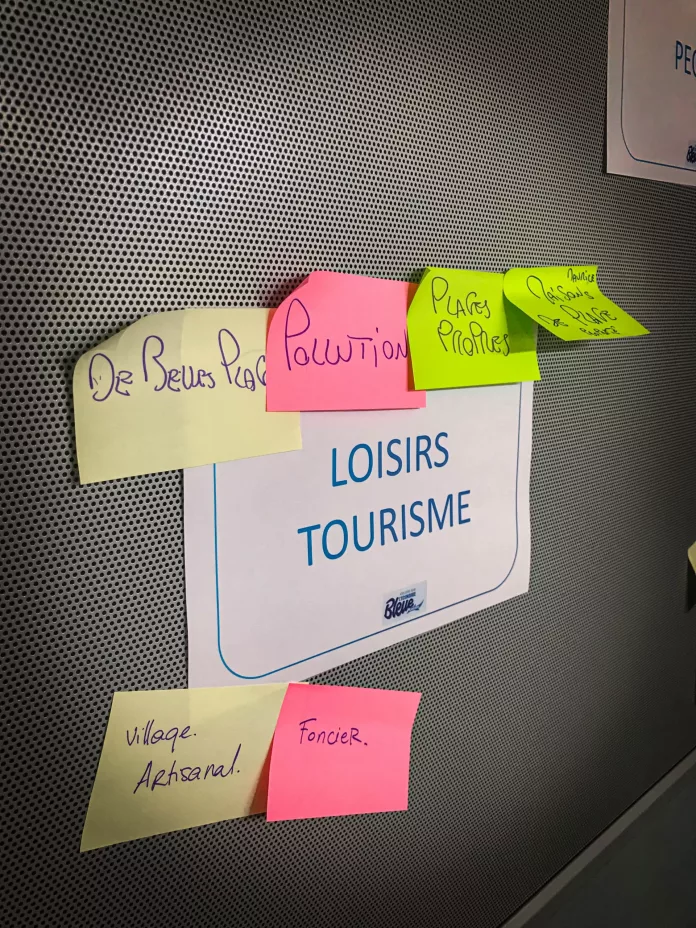 PEC
De Belles Plag
Pollution
PLAGES
PROPRES
MAURICE
MAISONS
DE PLAGE
LOISIRS
TOURISME
Bleue
Village.
Artisanal.
FoncieR.